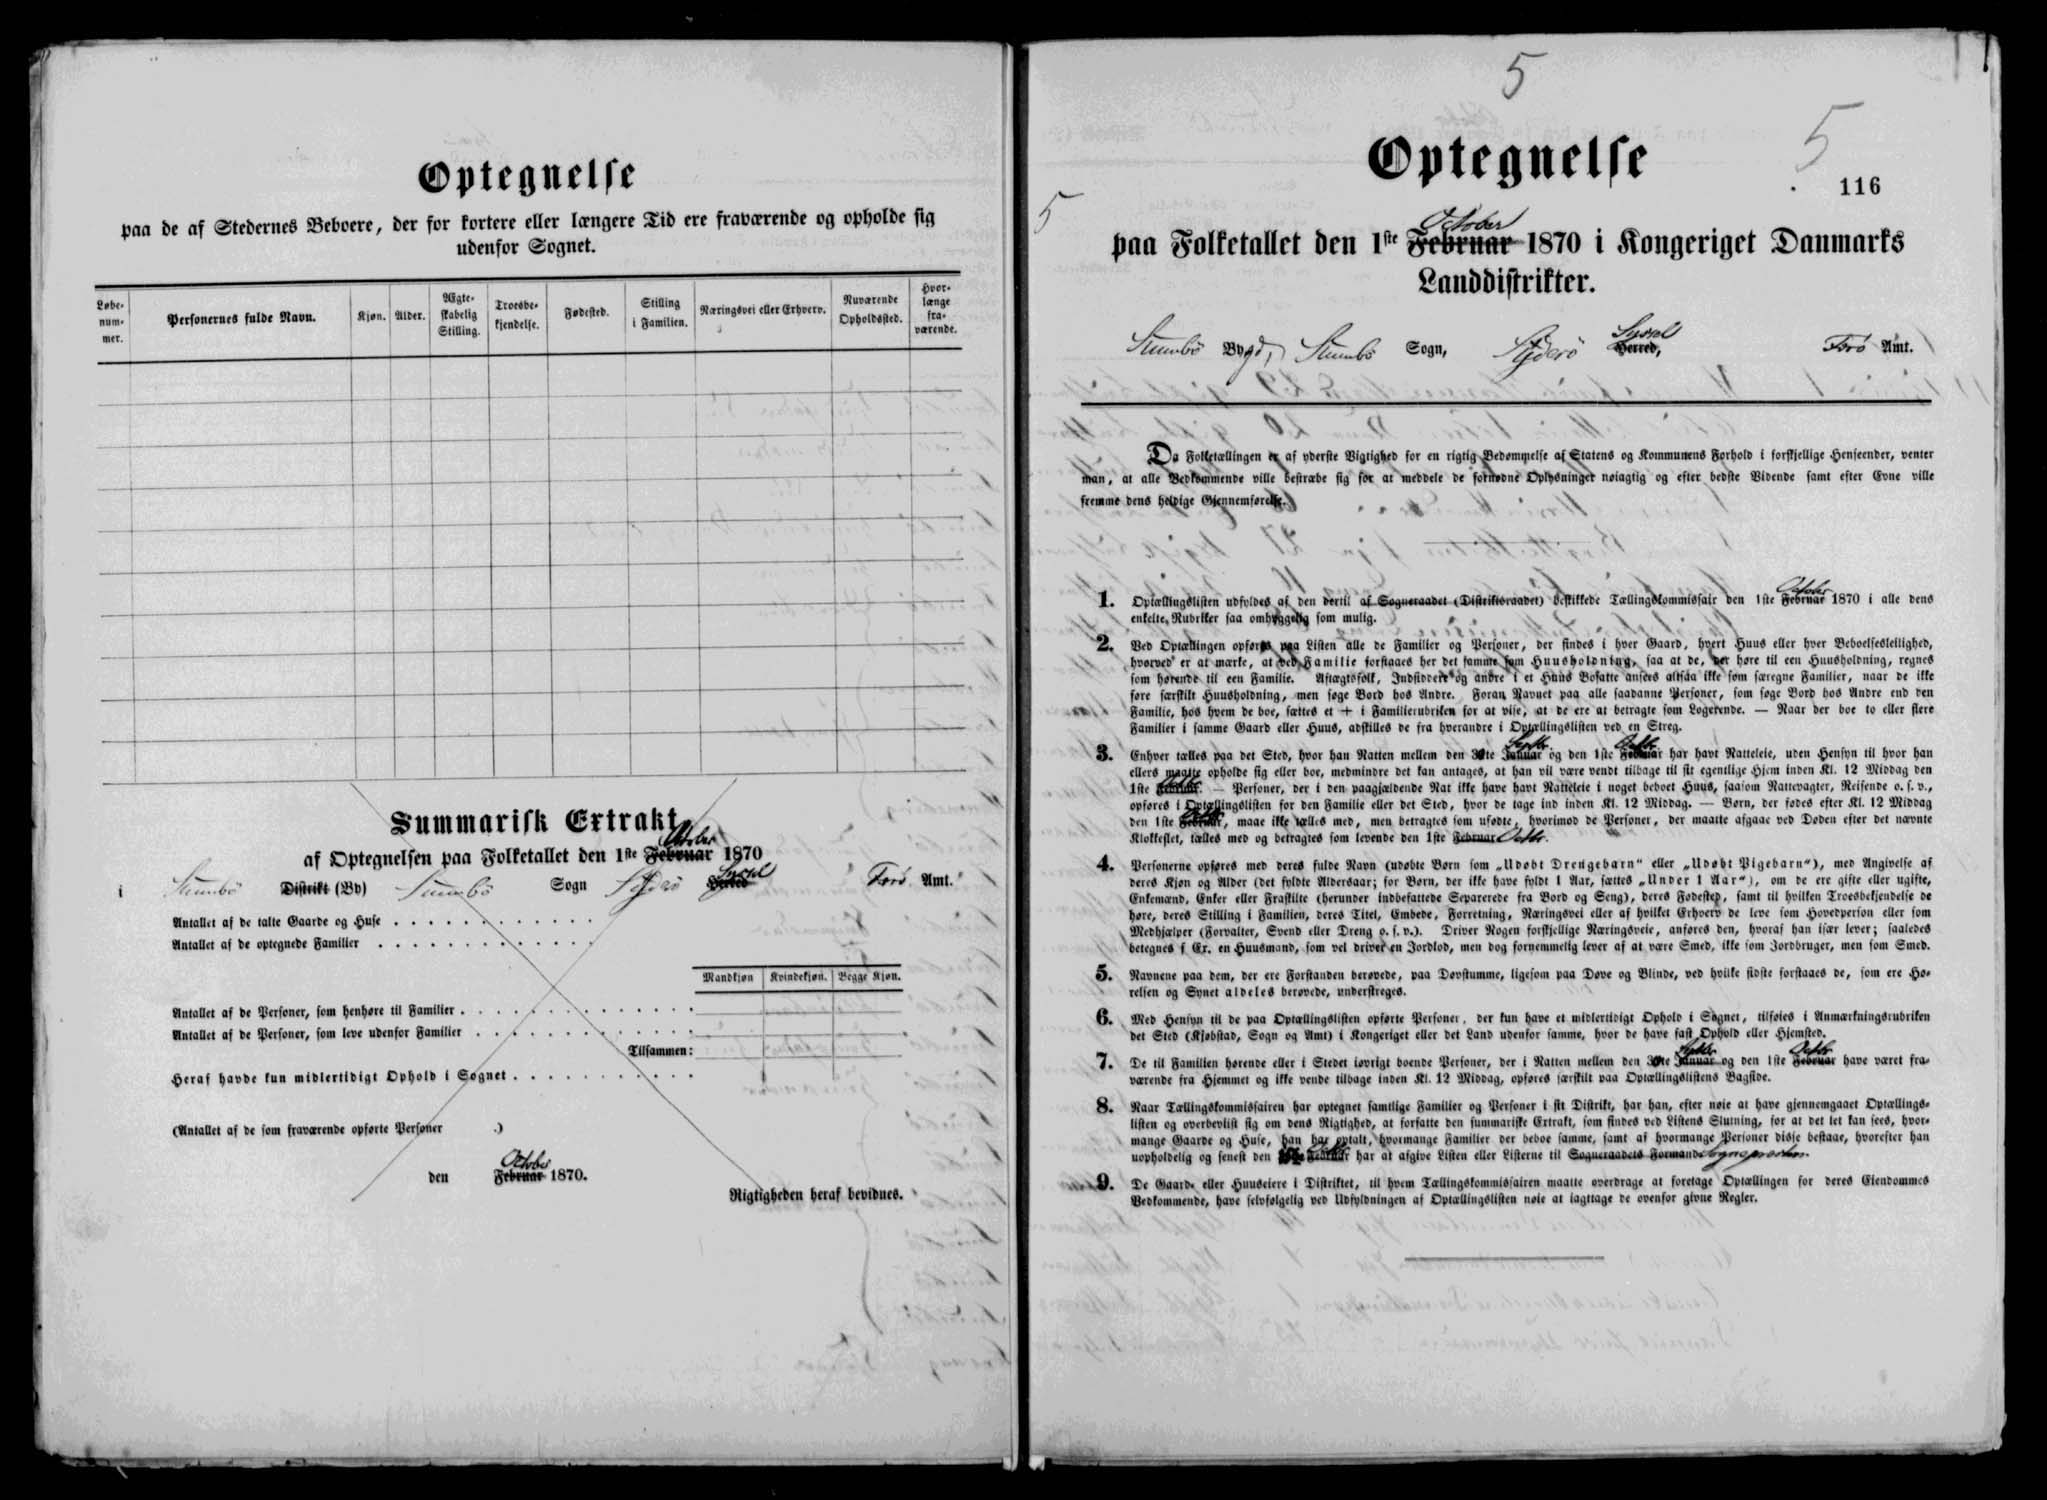 Optegnelse
paa de af Stedernes Beboere, der for kortere eller længere Tid ere fraværende og opholde sig
udenfor Sognet.
Løbe-
num-
mer.
Personernes fulde Navn.
Kjøn.
Alder.
Ægte-
skabelig
Stilling.
Troesbe-
kjendelse.
Fødested.
Stilling
i Familien.
Næringsvei eller Erhverv.
Nuværende
Opholdssted.
Hvor-
længe
fra-
værende.
Summarisk Extrakt
October
af Optegnelsen paa Folketallet den 1ste Februar 1870
Syssel
i Sumbö Distrikt (By) Sumbö Sogn Syderö Herred Færö Amt.
Antallet af de talte Gaarde og Huse . . . . . . . . . . .
Antallet af de optegnede Familier . . . . . . . . . . . .
Mandkjøn Kvindekjøn. Begge Kjøn.
Antallet af de Personer, som henhøre til Familier . . . . . . . . . . . . .
Antallet af de Personer, som leve udenfor Familier . . . . . . . . . . . . .
Tilsammen:
Heraf havde kun midlertidigt Ophold i Sognet . . . . . . . . . . .
(Antallet af de som fraværende opførte Personer .)
October
den Februar 1870.
Rigtigheden heraf bevidnes.
5
5
5
116
Optegnelse
October
paa Folketallet den 1ste Februar 1870 i Kongeriget Danmarks
Landdistrikter.
Syssel
Sumbö Bygd, Sumbö Sogn, Syderö Herred, Færö Amt.
Da Folketællingen er af yderste Vigtighed for en rigtig Bedømmelse af Statens og Kommunens Forhold i forskjellige Henseender, venter
man, at alle Vedkommende ville bestræbe sig for at meddele de fornødne Oplysninger nøiagtig og efter bedste Vidende samt efter Evne ville
fremme dens heldige Gjennemførelse.
Octobr
1. Optællingslisten udfyldes af den dertil af Sogneraadet (Distriktsraadet) beskikkede Tællingskommissair den 1ste Februar 1870 i alle dens
enkelte Rubriker saa omhyggelig som mulig.
2. Ved Optællingen opføres paa Listen alle de Familier og Personer, der findes i hver Gaard, hvert Huus eller hver Beboelsesleilighed,
hvorved er at mærke, at ved Familie forstaaes her det samme som Huusholdning, saa at de, der høre til een Huusholdning, regnes
som hørende til een Familie. Aftægtsfolk, Indsiddere og andre i et Huus Bosatte ansees altsaa ikke som særegne Familier, naar de ikke
føre særskilt Huusholdning, men søge Bord hos Andre. Foran Navnet paa alle saadanne Personer, som søge Bord hos Andre end den
Familie, hos hvem de boe, sættes et + i Familierubriken for at vise, at de ere at betragte som Logerende. — Naar der boe to eller flere
Familier i samme Gaard eller Huus, adskilles de fra hverandre i Optællingslisten ved en Streg.
Septbr. Octbr
3. Enhver tælles paa det Sted, hvor han Natten mellem den 30te Januar og den 1ste Februar har havt Natteleie, uden Hensyn til hvor han
ellers maatte opholde sig eller boe, medmindre det kan antages, at han vil være vendt tilbage til sit egentlige Hjem inden Kl. 12 Middag den
Octbr
1ste Februar. — Personer, der i den paagjældende Nat ikke have havt Natteleie i noget beboet Huus, saasom Nattevagter, Reisende o. s. v.,
opføres i Optællingslisten for den Familie eller det Sted, hvor de tage ind inden Kl. 12 Middag. — Børn, der fødes efter Kl. 12 Middag
Octbr
den 1ste Februar, maae ikke tælles med, men betragtes som ufødte, hvorimod de Personer, der maatte afgaae ved Døden efter det nævnte
Klokkeslet, tælles med og betragtes som levende den 1ste Februar Octbr.
4. Personerne opføres med deres fulde Navn (udøbte Børn som „Udøbt Drengebarn“ eller „Udøbt Pigebarn“), med Angivelse af
deres Kjøn og Alder (det fyldte Aldersaar; for Børn, der ikke have fyldt 1 Aar, sættes „Under 1 Aar“), om de ere gifte eller ugifte,
Enkemænd, Enker eller Fraskilte (herunder indbefattede Separerede fra Bord og Seng), deres Fødested, samt til hvilken Troesbekjendelse de
høre, deres Stilling i Familien, deres Titel, Embede, Forretning, Næringsvei eller af hvilket Erhverv de leve som Hovedperson eller som
Medhjælper (Forvalter, Svend eller Dreng o. s. v.). Driver Nogen forskjellige Næringsveie, anføres den, hvoraf han især lever; saaledes
betegnes f. Ex. en Huusmand, som vel driver en Jordlod, men dog fornemmelig lever af at være Smed, ikke som Jordbruger, men som Smed.
5. Navnene paa dem, der ere Forstanden berøvede, paa Døvstumme, ligesom paa Døve og Blinde, ved hvilke sidste forstaaes de, som ere Hø-
relsen og Synet aldeles berøvede, understreges.
6. Med Hensyn til de paa Optællingslisten opførte Personer, der kun have et midlertidigt Ophold i Sognet, tilføies i Anmærkningsrubriken
det Sted (Kjøbstad, Sogn og Amt) i Kongeriget eller det Land udenfor samme, hvor de have fast Ophold eller Hjemsted.
Septbr Octbr
7. De til Familien hørende eller i Stedet iøvrigt boende Personer, der i Natten mellem den 30te Januar og den 1ste Februar have været fra-
værende fra Hjemmet og ikke vende tilbage inden Kl. 12 Middag, opføres særskilt paa Optællingslistens Bagside.
8. Naar Tællingskommissairen har optegnet samtlige Familier og Personer i sit Distrikt, har han, efter nøie at have gjennemgaaet Optællings-
listen og overbevist sig om dens Rigtighed, at forfatte den summariske Extrakt, som findes ved Listens Slutning, for at det let kan sees, hvor-
mange Gaarde og Huse, han har optalt, hvormange Familier der beboe samme, samt af hvormange Personer disse bestaae, hvorefter han
Octbr
uopholdelig og senest den Februar har at afgive Listen eller Listerne til Sogneraadets Formand Sognepræsten.
9. De Gaard- eller Huuseiere i Distriktet, til hvem Tællingskommissairen maatte overdrage at foretage Optællingen for deres Eiendommes
Vedkommende, have selvfølgelig ved Udfyldningen af Optællingslisten nøie at iagttage de ovenfor givne Regler.